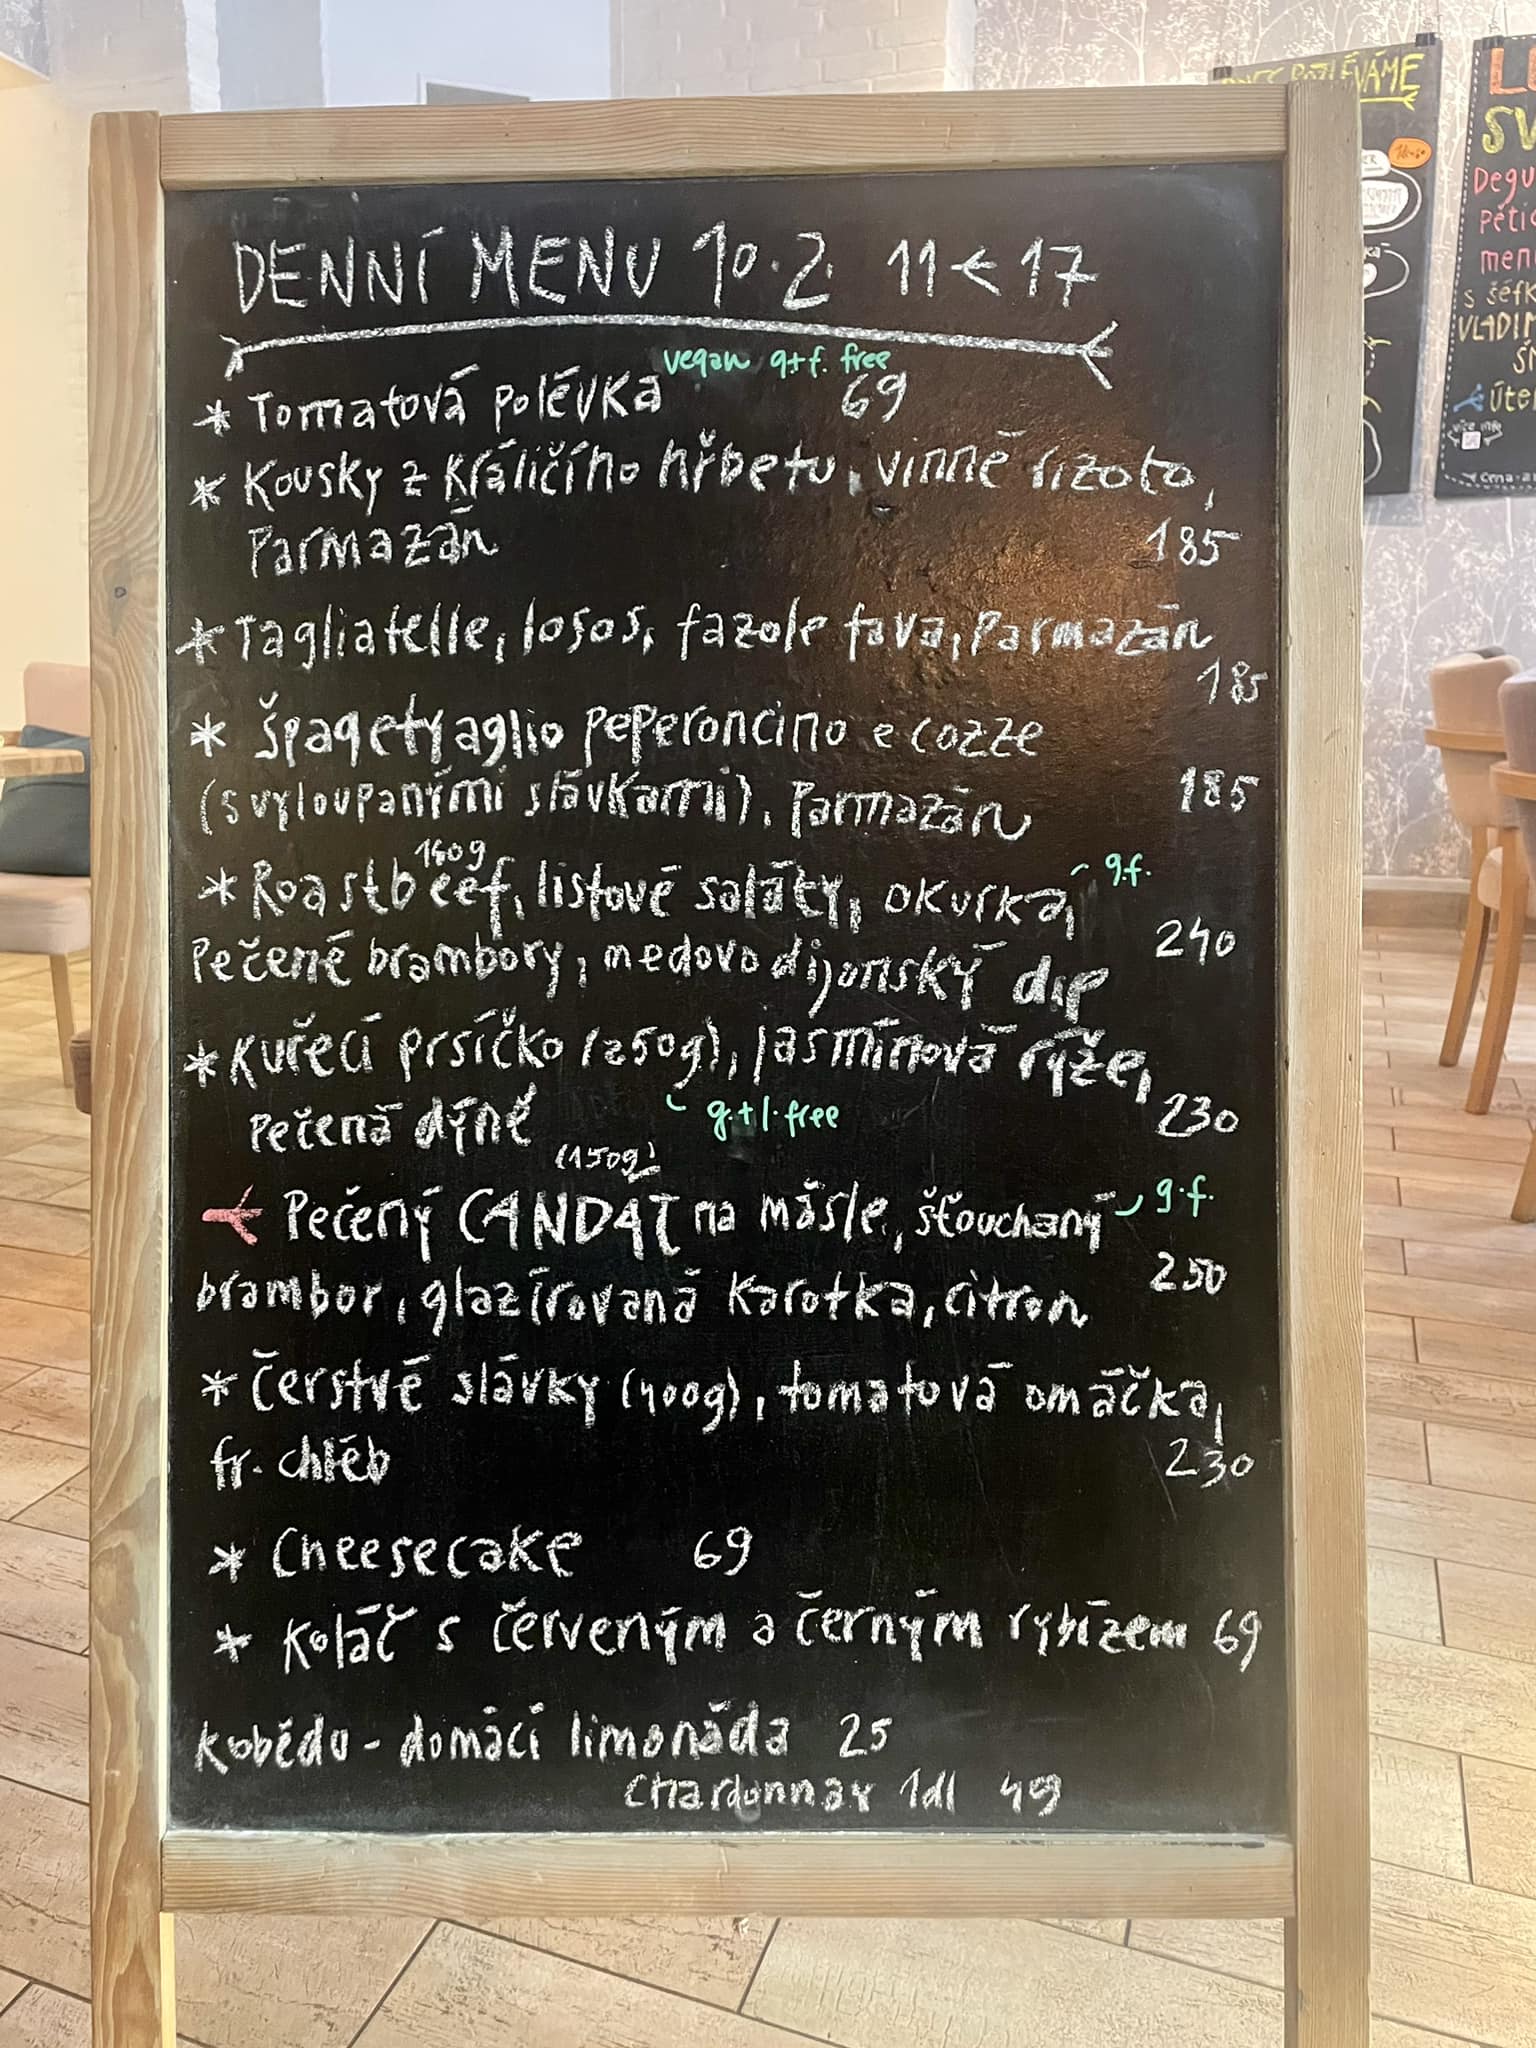 DENNÍ MENU 10.2. 11 < 17
vegan g+f. free
* Tomatová polévka 69
* Kousky z králičího hřbetu, vinné rizoto,
Parmazán 185
* Tagliatelle, losos, fazole fava, Parmazán
185
* Špagety aglio peperoncino e cozze
(s vyloupanými slávkami), Parmazán 185
* Roastbeef, listové saláty, okurka, g.f.
240
Pečené brambory, medovo dijonský dip
* Kuřecí prsíčko (250g), jasmínová rýže,
Pečená dýně g.+l. free 230
(150g)
Pečený CANDÁT na másle, šťouchaný g.f.
250
brambor, glazírovaná karotka, citron
* Čerstvé slávky (400g), tomatová omáčka,
fr. chléb 230
* Cheesecake 69
* Koláč s červeným a černým rybízem 69
K obědu - domácí limonáda 25
Chardonnay 1dl 49
POLÉVÁME
SV
Degu
pěti
men
s šéfk
VLADIM
ŠM
Úte
více info